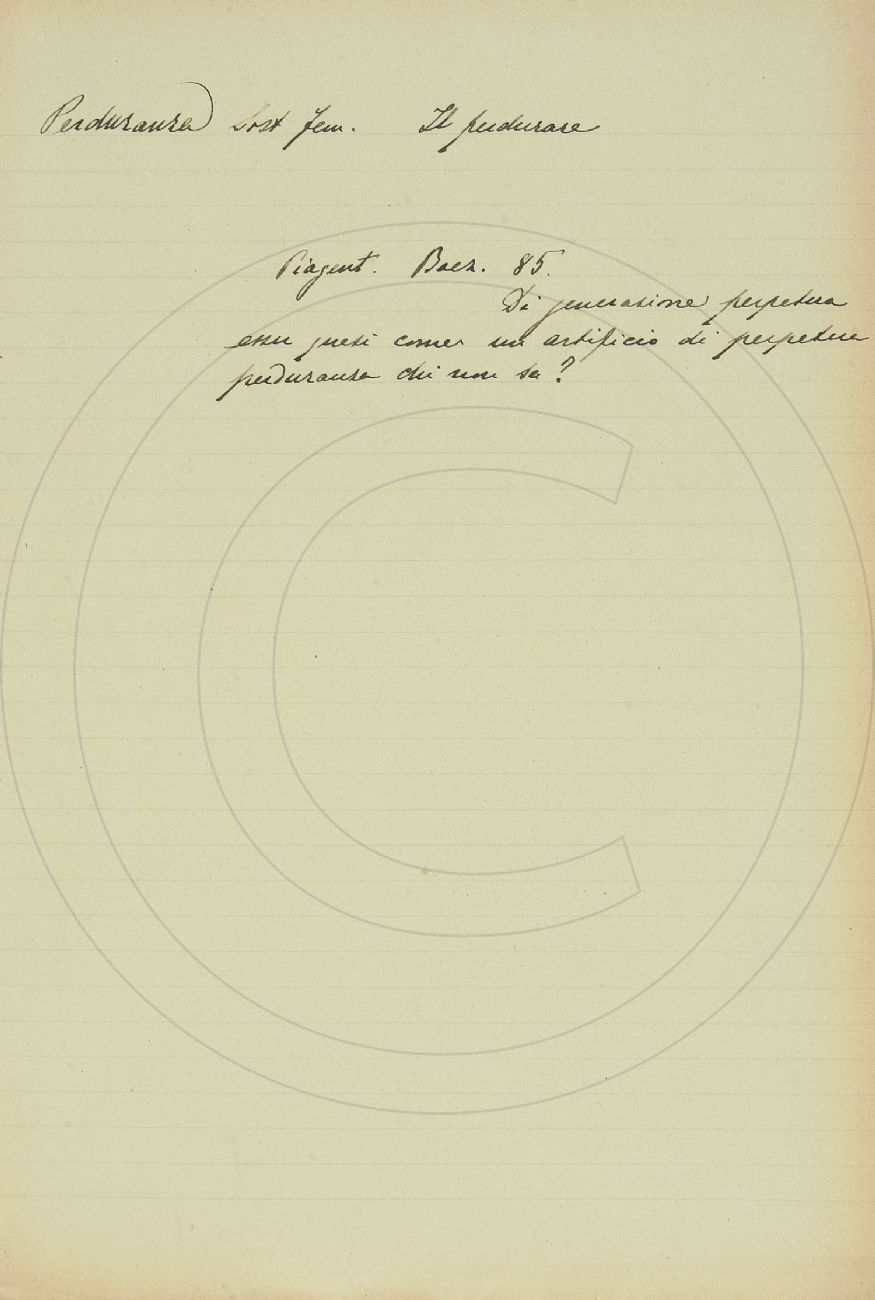 Perduranza) Sost fem. Il perdurare
Piagent. Boez. 85.
Di generazione perpetua
esser quasi come un artificio di perpetua
perduranza chi non sa?